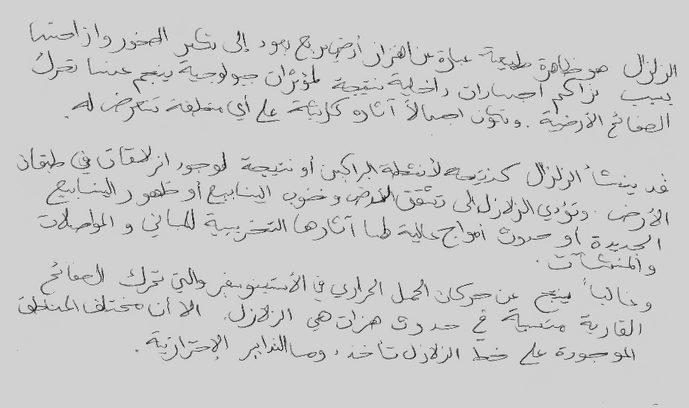 الزلزال هو ظاهرة طبيعية عبارة عن اهتزاز أرضي سريع يعود إلى تكسر الصخور وازاحتها
بسبب تراكم اجهادات داخلية نتيجة لمؤثرات جيولوجية ينجم عنها تحرك
الصفائح الأرضية. وتكون اجمالاً آثاره كارثية على أي منطقة تتعرض له.
قد ينشأ الزلزال كنتيجة لأنشطة البراكين أو نتيجة لوجود انزلاقات في طبقات
الأرض. وتؤدي الزلازل الى تشقق الأرض ونضوب الينابيع أو ظهور الينابيع
الجديدة أو حدوث أمواج عالية هذا آثارها التخريبية للمباني و المواصلات
والمنشآت.
وغالباً ينتج عن حركات الحمل الحراري في الأستينوسفير والتي تحرك الصفائح
القارية متسببة في حدوث هزات هي الزلازل. الا أن مختلف المناطق
الموجودة على خط الزلازل تأخذ التدابير الإحترازية.